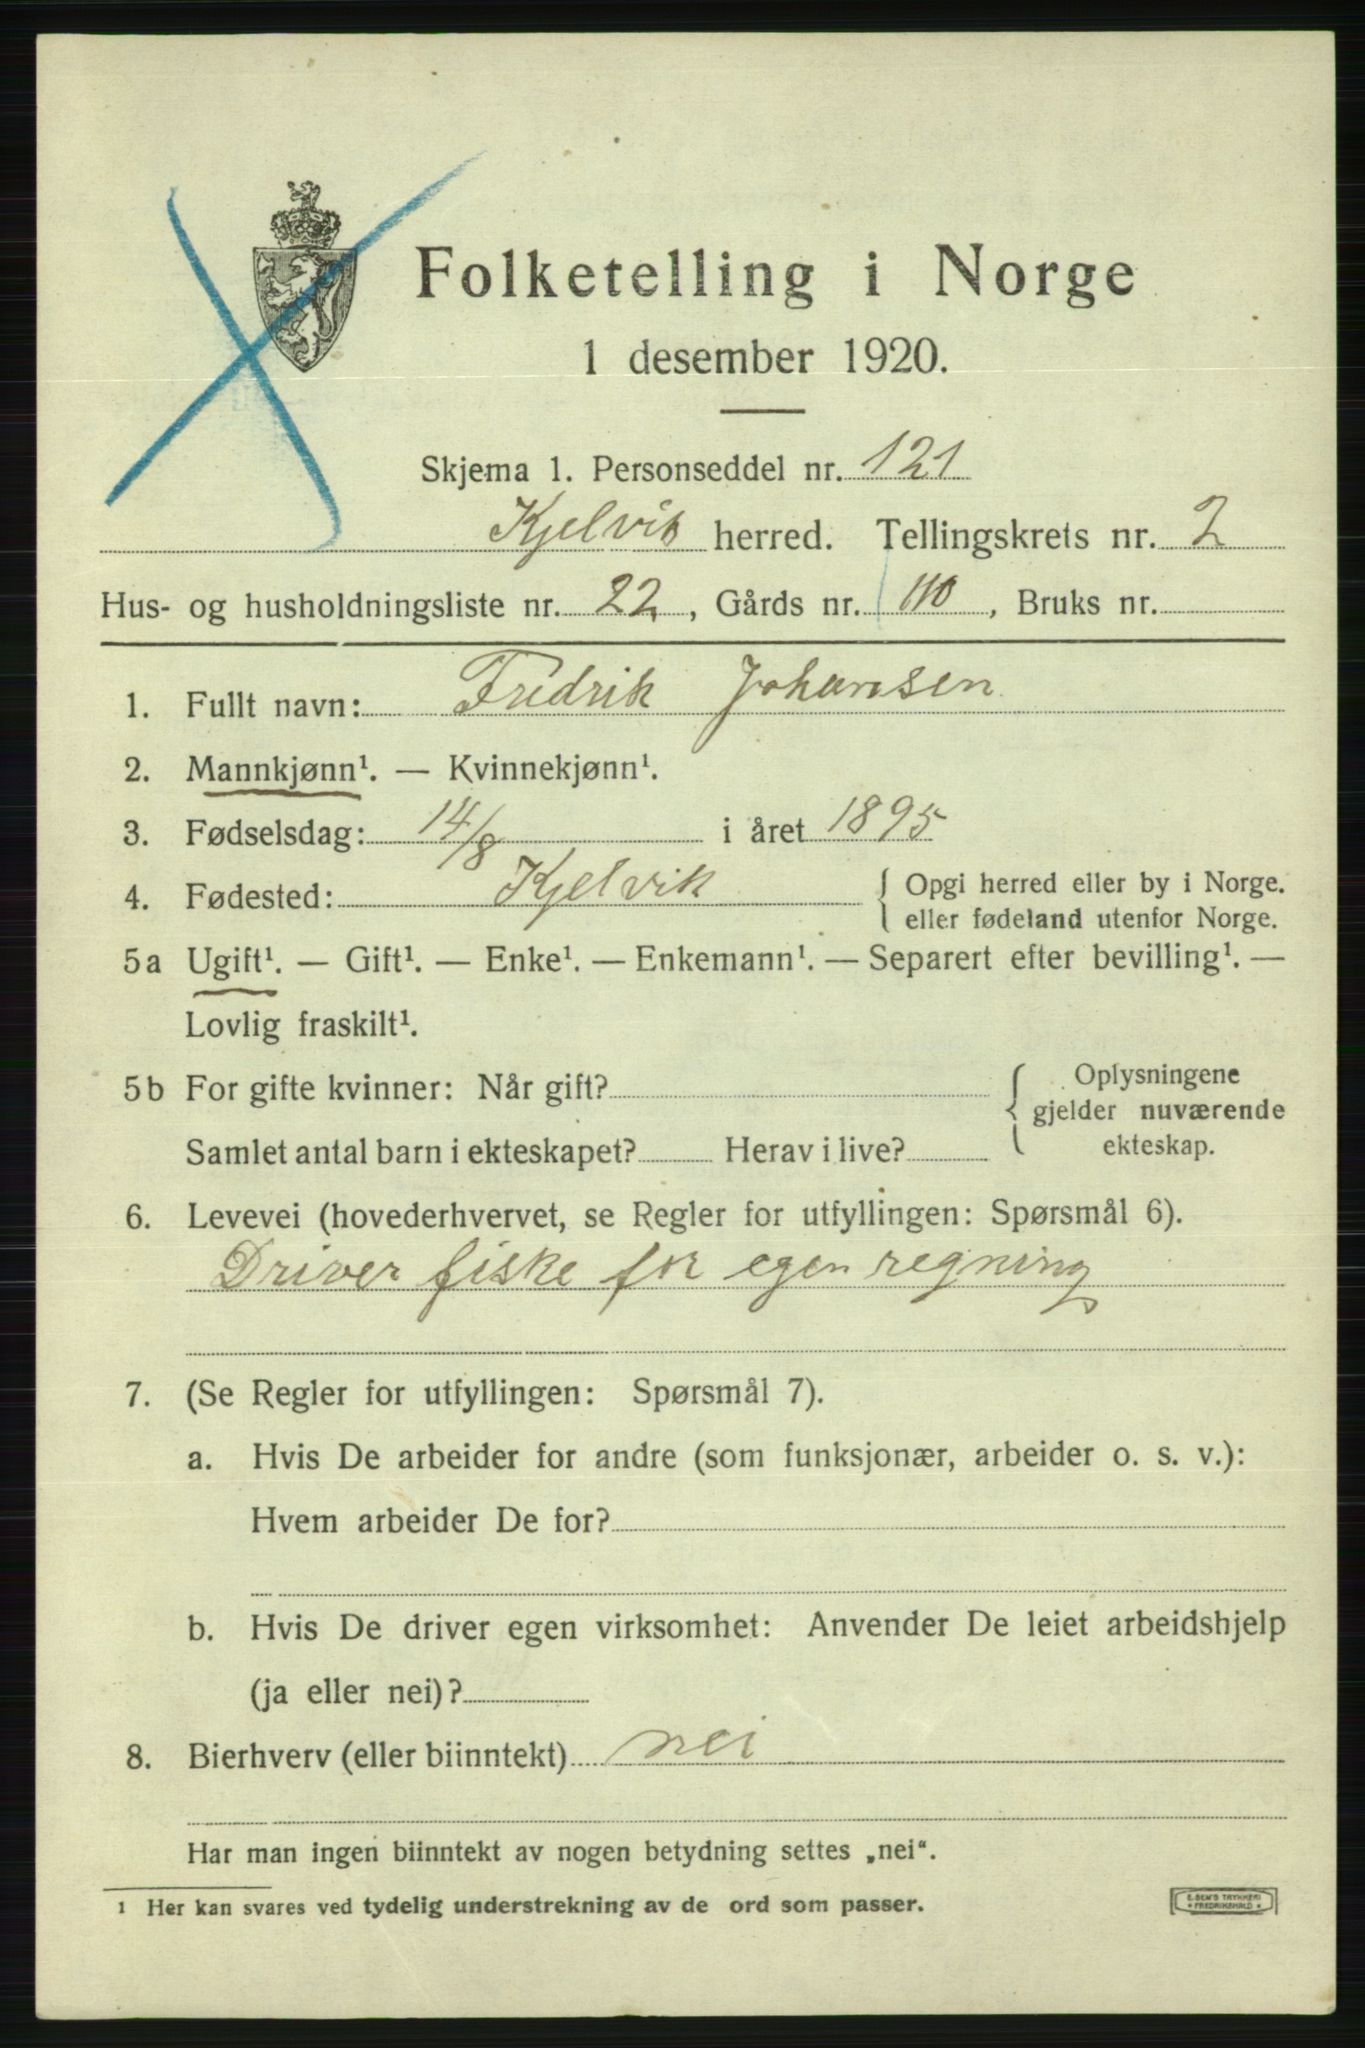 Folketelling i Norge
1 desember 1920.
Skjema 1. Personseddel nr. 121
Kjelvik herred. Tellingskrets nr. 2
Hus- og husholdningsliste nr. 22, Gårds nr. , Bruks nr.
1. Fullt navn: Fredrik Johansen
2. Mannkjønn¹. — Kvinnekjønn¹.
3. Fødselsdag: 14/8 i året 1895
4. Fødested: Kjelvik { Opgi herred eller by i Norge.
eller fødeland utenfor Norge.
5a Ugift¹. — Gift¹. — Enke¹. — Enkemann¹. — Separert efter bevilling¹. —
Lovlig fraskilt¹.
5b For gifte kvinner: Når gift? { Oplysningene
gjelder nuværende
Samlet antal barn i ekteskapet? Herav i live? ekteskap.
6. Levevei (hovederhvervet, se Regler for utfyllingen: Spørsmål 6).
Driver fiske for egen regning
7. (Se Regler for utfyllingen: Spørsmål 7).
a. Hvis De arbeider for andre (som funksjonær, arbeider o. s. v.):
Hvem arbeider De for?
b. Hvis De driver egen virksomhet: Anvender De leiet arbeidshjelp
(ja eller nei)?
8. Bierhverv (eller biinntekt) nei
Har man ingen biinntekt av nogen betydning settes „nei“.
¹ Her kan svares ved tydelig understrekning av de ord som passer.
E. SEM'S TRYKKERI
* FREDRIKSHALD *